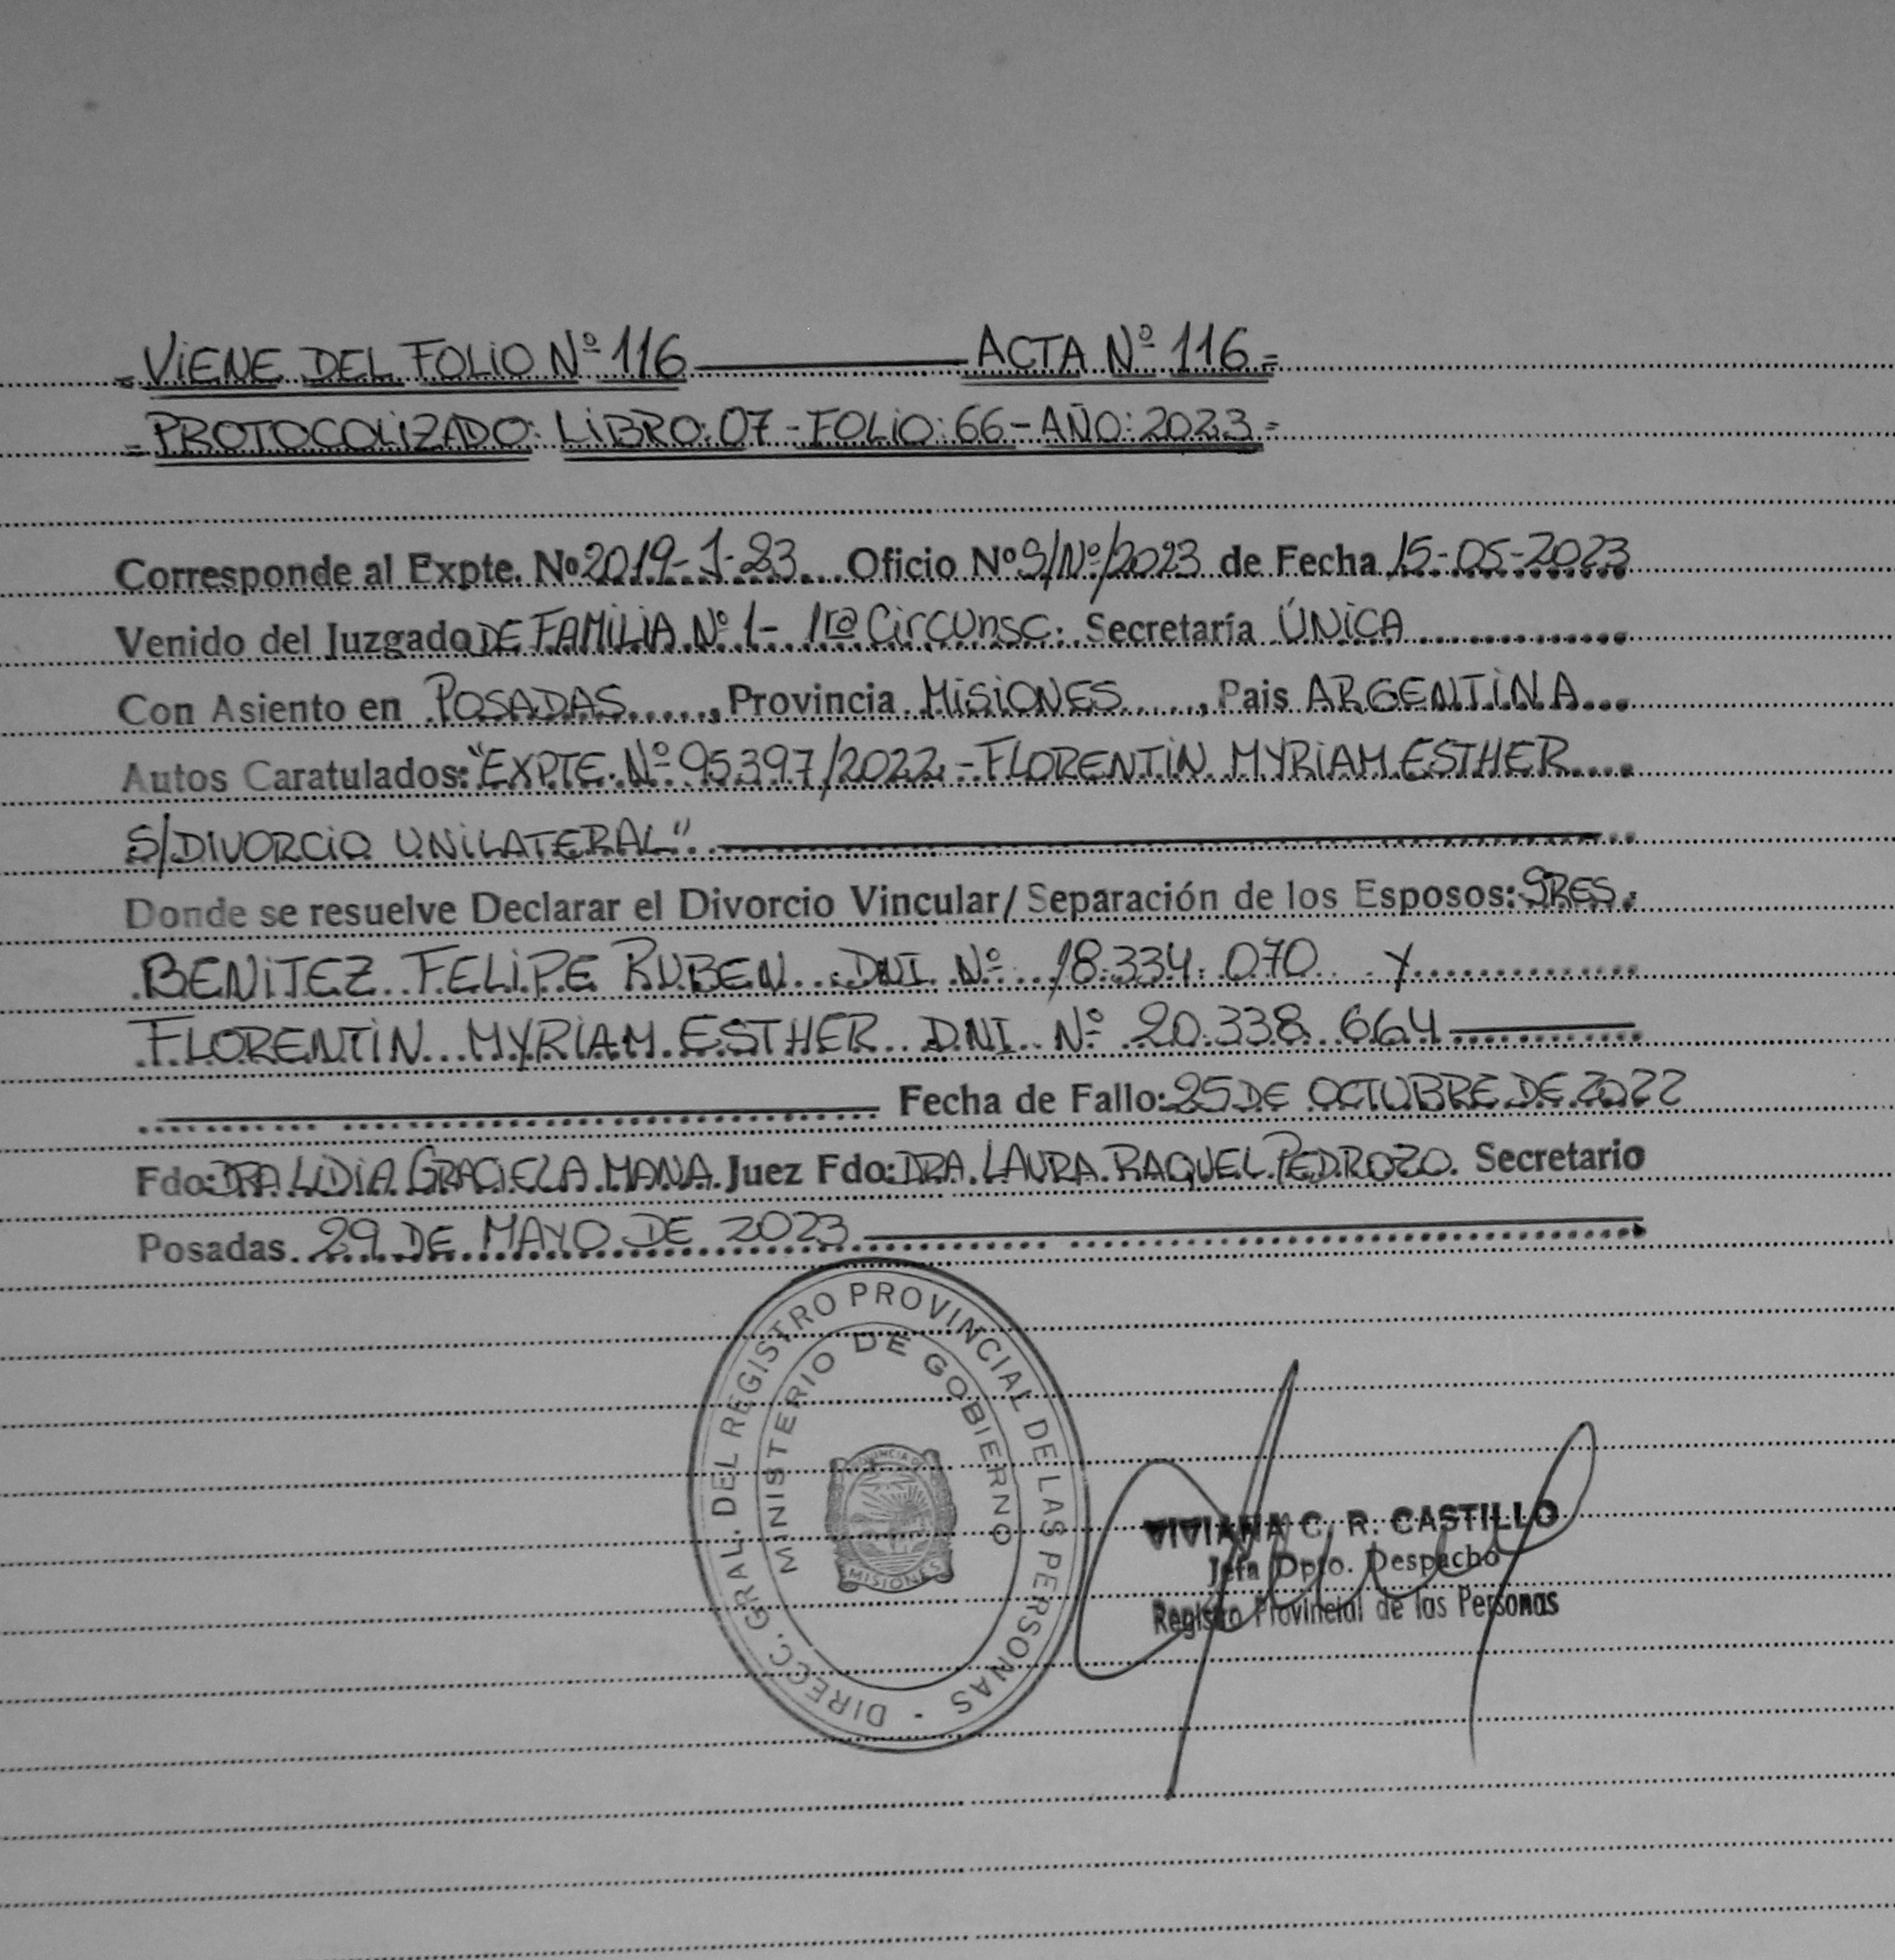 = VIENE DEL FOLIO Nº 116 ACTA Nº 116 =
= PROTOCOLIZADO: LIBRO: 07 - FOLIO: 66 - AÑO: 2023 =
Corresponde al Expte. Nº 2019-J-23 Oficio Nº S/Nº/2023 de Fecha 15-05-2023
Venido del Juzgado DE FAMILIA Nº 1 - 1ra Circunsc. Secretaría ÚNICA
Con Asiento en POSADAS, Provincia MISIONES, Pais ARGENTINA
Autos Caratulados: "EXPTE. Nº 95397/2022 - FLORENTIN MYRIAM ESTHER
S/DIVORCIO UNILATERAL".
Donde se resuelve Declarar el Divorcio Vincular/ Separación de los Esposos: SRES.
BENITEZ FELIPE RUBEN DNI Nº 18.334.070 Y
FLORENTIN MYRIAM ESTHER DNI Nº 20.338.664
Fecha de Fallo: 25 DE OCTUBRE DE 2022
Fdo: DRA LIDIA GRACIELA MANA Juez Fdo: DRA. LAURA RAQUEL PEDROZO. Secretario
Posadas 29 DE MAYO DE 2023
DIRECC. GRAL. DEL REGISTRO PROVINCIAL DE LAS PERSONAS -
MINISTERIO DE GOBIERNO
PROVINCIA DE
MISIONES
VIVIANA C. R. CASTILLO
Jefa Dpto. Despacho
Registro Provincial de las Personas